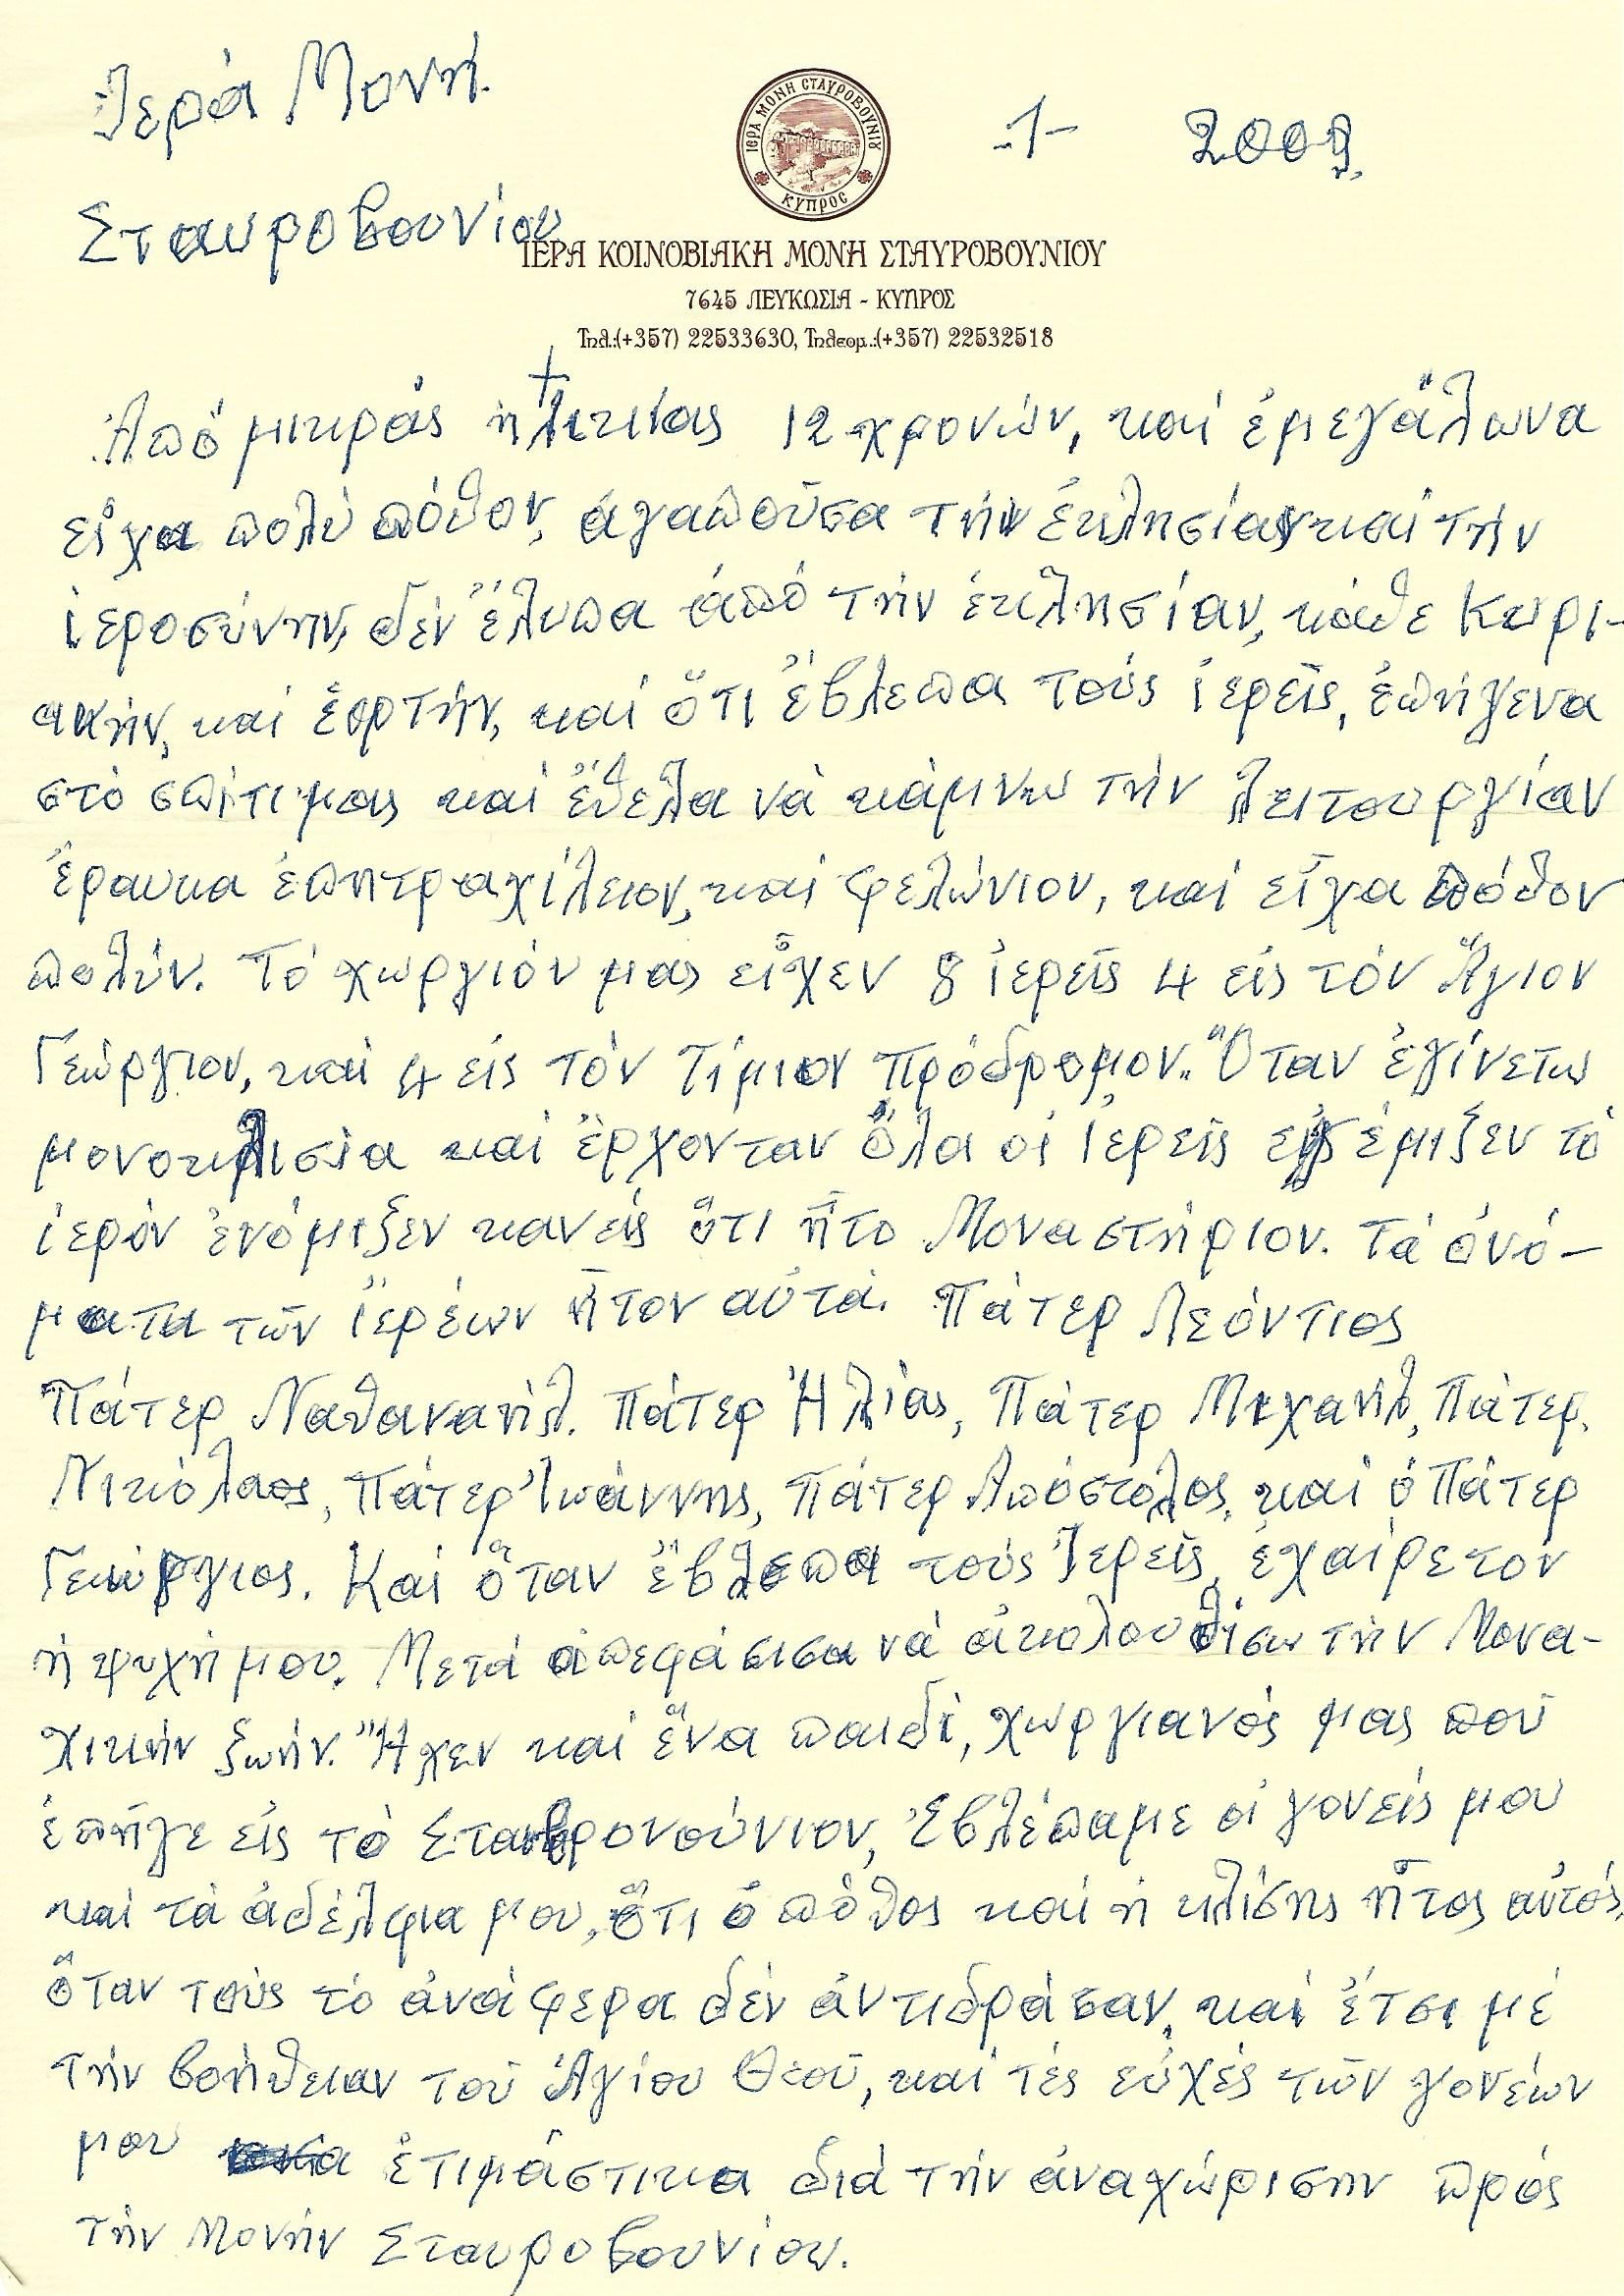 Ἱερά Μονή.
Σταυροβουνίου
-1-
2009.
ΙΕΡΑ ΜΟΝΗ ΣΤΑΥΡΟΒΟΥΝΙΟΥ
ΚΥΠΡΟΣ
ΙΕΡΑ ΚΟΙΝΟΒΙΑΚΗ ΜΟΝΗ ΣΤΑΥΡΟΒΟΥΝΙΟΥ
7645 ΛΕΥΚΩΣΙΑ - ΚΥΠΡΟΣ
Τηλ.:(+357) 22533630, Τηλεομ.:(+357) 22532518
Ἀπό μικρᾶς ἡλικίας 12 χρονῶν, καί ἐμεγάλωνα
εἶχα πολύ πόθον, ἀγαποῦσα τήν ἐκλησίαν καί τήν
ἱεροσύνην, δέν ἔλυπα ἀπό τήν ἐκλησίαν, κάθε Κυρι-
ακήν, καί ἑορτήν, καί ὅτι ἔβλεπα τούς ἱερεῖς, ἐπήγενα
στό σπίτι μας καί ἔθελα νὰ κάμνω τήν λειτουργίαν
ἔραυκα ἐπητραχίλειον, καί φελώνιον, καί εἶχα πόθον
πολύν. Τό χωργιόν μας εἶχεν 8 ἱερεῖς 4 εἰς τόν Ἅγιον
Γεώργιον, καί 4 εἰς τόν Τίμιον Πρόδρομον. Ὅταν ἐγίνετω
μονοκλισία καί ἔρχονταν ὅλα οἱ ἱερεῖς ἐγέμιζεν τό
ἱερόν ἐνόμιζεν κανείς ὅτι ἦτο Μοναστήριον. Τά ὀνό-
ματα τῶν ἱερέων ἦτον αὐτά. Πάτερ Λεόντιος
Πάτερ Ναθαναήλ. Πάτερ Ἠλίας, Πάτερ Μιχαήλ, Πάτερ.
Νικόλαος, Πάτερ Ἰωάννης, Πάτερ Ἀπόστολος, καί ὁ Πάτερ
Γεώργιος. Καί ὅταν ἔβλεπα τούς Ἱερεῖς, ἐχαίρετον
ἡ ψυχή μου. Μετά ἀπεφάσισα νά ἀκολουθίσω τήν Μονα-
χικήν ζωήν. Ἦχεν καί ἕνα παιδί, χωργιανός μας πού
ἐπῆγε εἰς τό Σταβρονούνιον, Ἐβλέπαμε οἱ γονείς μου
καί τά ἀδέλφια μου, ὅτι ὁ πόθος καί ἡ κλίσης ἦτος αὐτός,
ὅταν τούς τό ἀνάφερα δέν ἀντιδράσαν, καί ἔτσι μέ
τήν βοήθειαν τοῦ Ἁγίου Θεοῦ, καί τές εὐχές τῶν γονέων
μου ἐτιμάστικα διά τήν ἀναχώρισην πρός
τήν Μονήν Σταυροβουνίου.